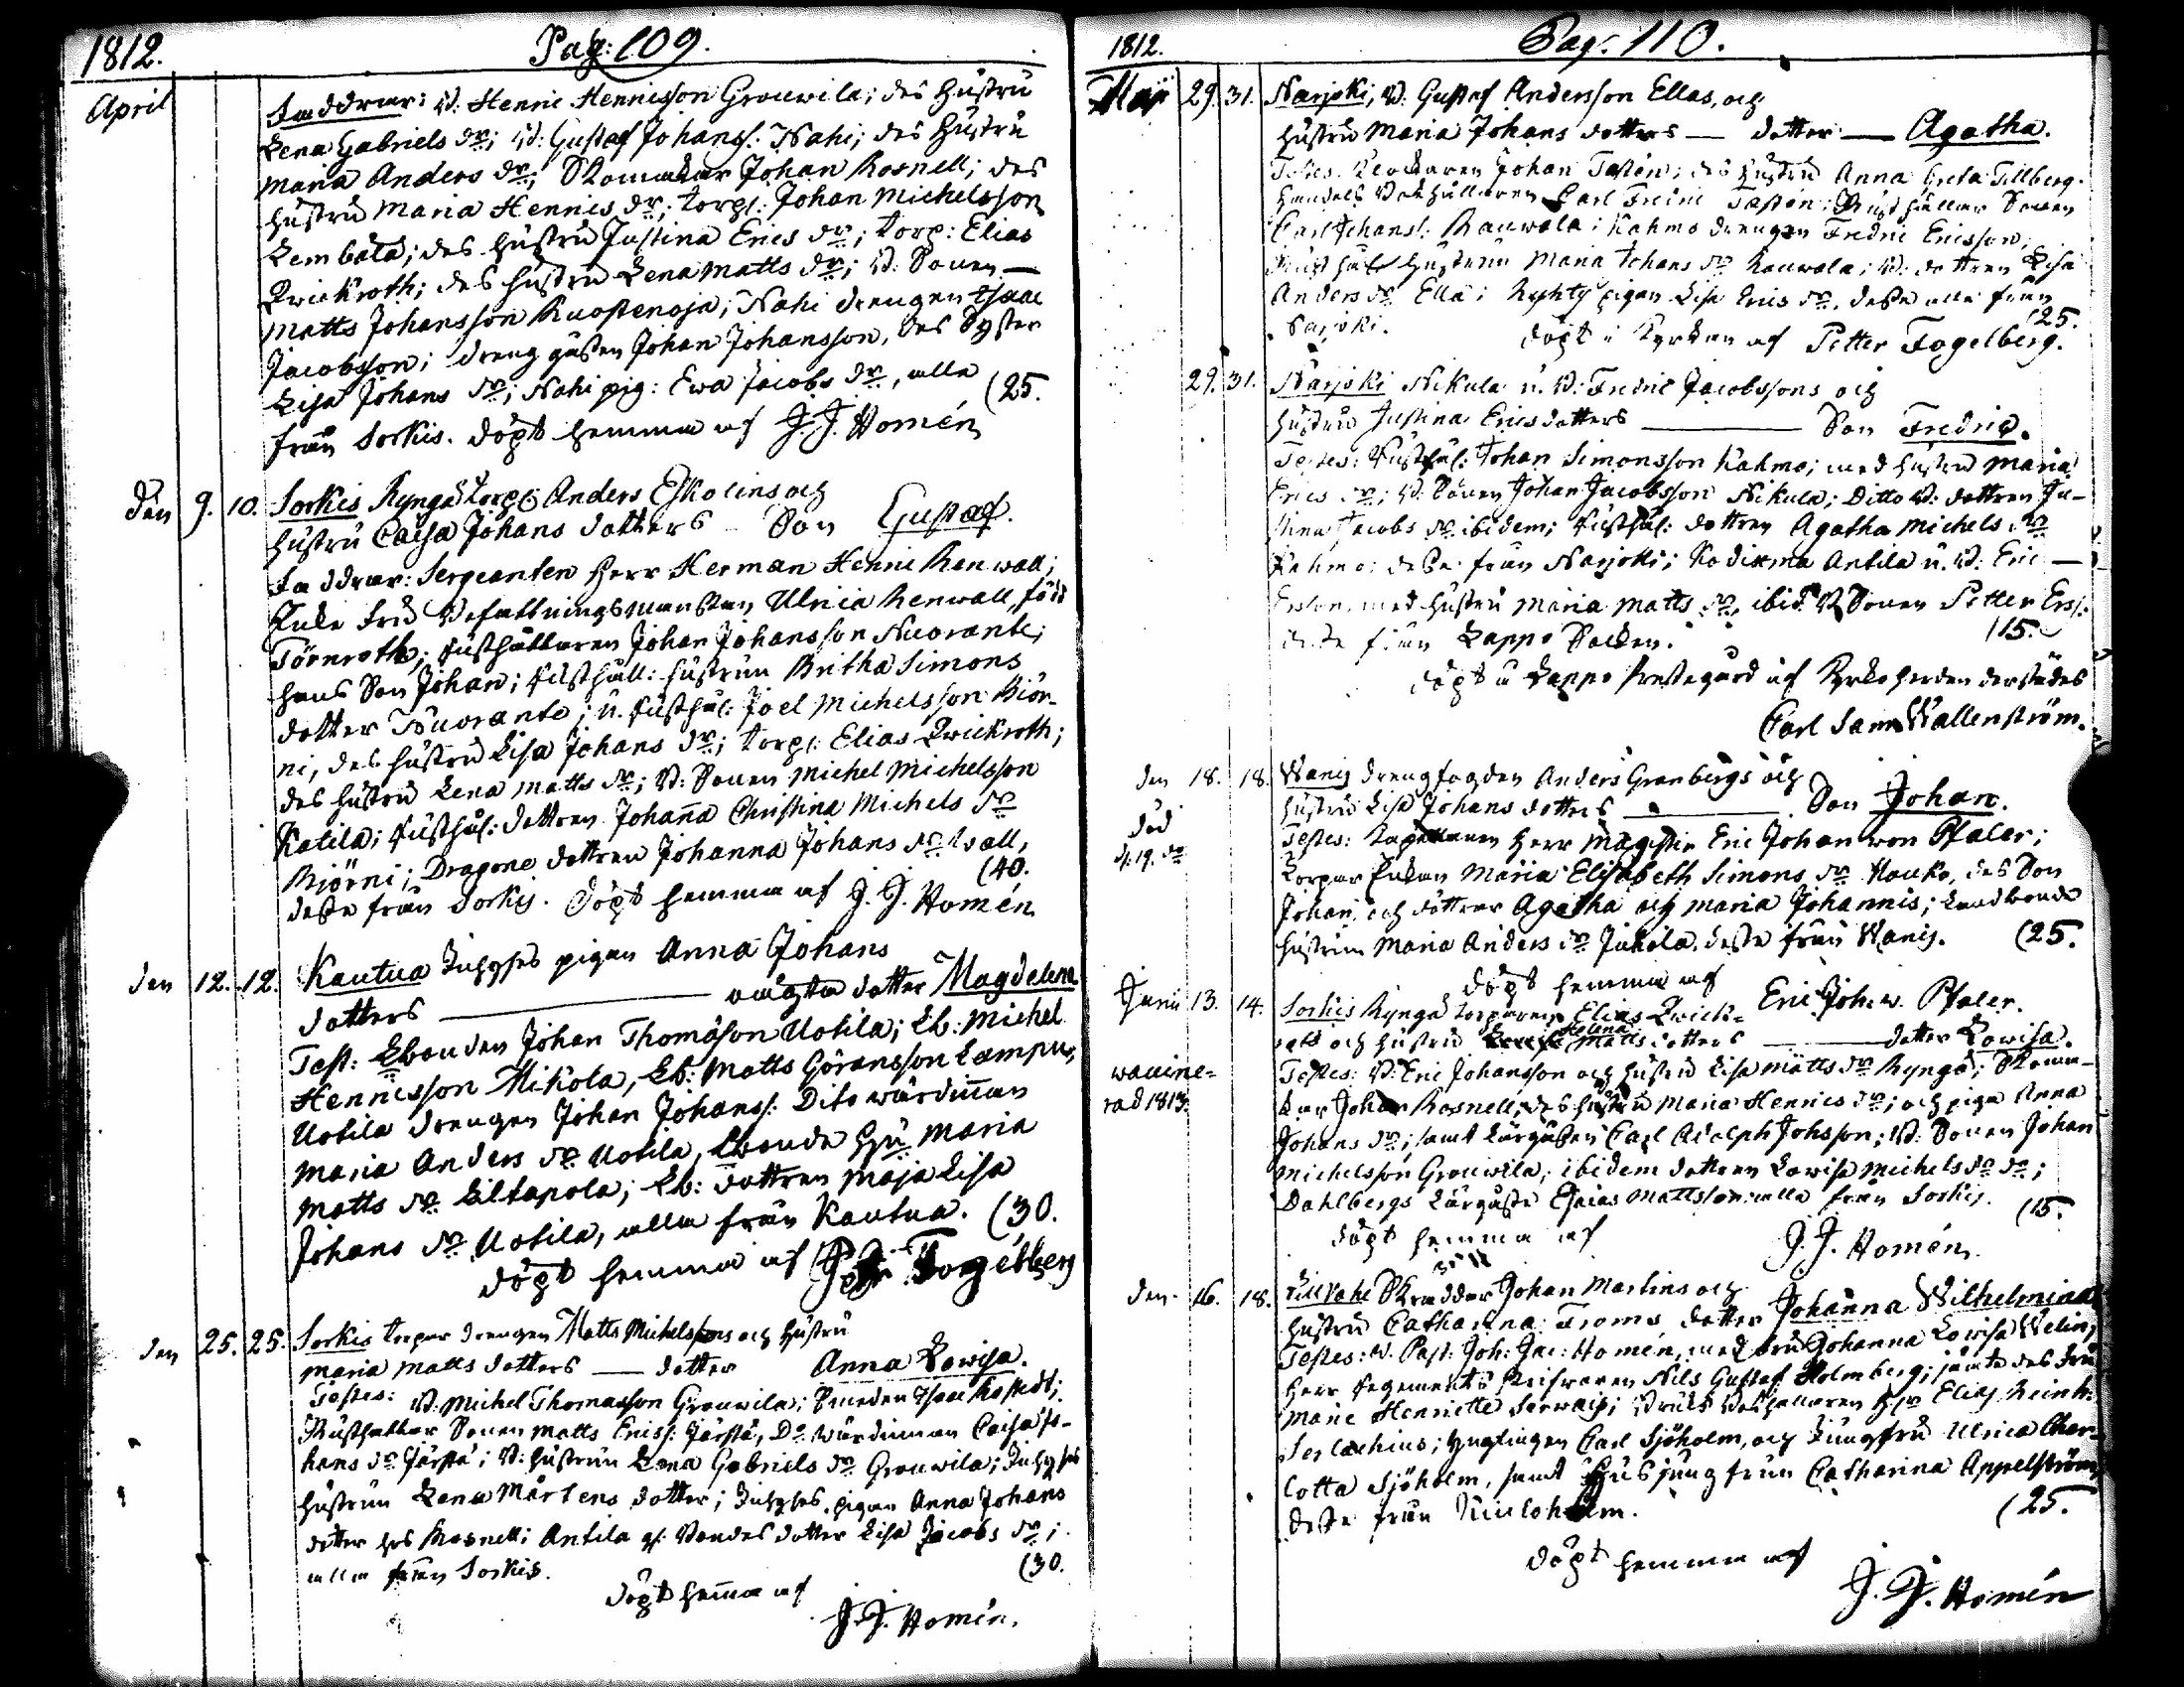 1812. Pag: 109.
April
Faddrar: B: Henric Hennicsson Grouwila; des Hustru
Lena Gabriels dr; B: Gustaf Johanss: Nahi; des Hustru
Maria Anders dr; Skomakar Johan Rosnell; des
hustru Maria Hennics dr; torp: Johan Michelsson
Lembälä; des hustru Justina Erics dr; torp: Elias
Qwickroth; des hustru Lena Matts dr; B: Sonen
Matts Johansson Ruostenoja; Nahi drengen Isaac
Jacobsson; dreng gåssen Johan Johansson, des Syster
Lisa Johans dr; Nahi pig: Ewa Jacobs dr, alla (25.
från Sorkis. döpt hemma af J. J. Homén
Den 9. 10. Sorkis Ryngä torp: Anders Eskolins och
hustru Caisa Johans dotters Son Gustaf.
Faddrar: Sergeanten Herr Herman Henric Renwall;
Enke Fru Befattningsmanskan Ulrica Renwall, född
Törnroth; Rusthållaren Johan Johansson Nuoranti;
hans Son Johan; Rusthåll: hustrun Britha Simons
dotter Nuoranti; u. Rusthål: Joel Michelsson Biör-
ni, des hustru Lisa Johans dr; torp: Elias Qwickroth;
des hustru Lena Matts dr; B: Sonen Michel Michelsson
Katila; Rusthål: dottren Johanna Christina Michels dr
Björni; Dragone dottren Johanna Johans dr wall,
desse från Sorkis. döpt hemma af J. J. Homén (40.
den 12. 12. Kautua Inhyses pigan Anna Johans
dotters oägta dotter Magdelena
Test: Lbonden Johan Thomasson Uotila; Lb: Michel
Hennicsson Mikola, Lb: Matts Göransson Lampu,
Uotila drengen Johan Johanss: Dito wärdinnan
Maria Anders dr Uotila, Lbonde Hu Maria
Matts dr Eltapola; Lb: dottren Maja Lisa
Johans dr Uotila, alla från Kautua. (30.
döpt hemma af Pr Fogelberg
den 25. 25. Sorkis torpar drengen Matts Michelssons och hustru
Maria Matts dotters dotter Anna Lowisa.
Testes: B. Michel Thomasson Grouwila; Smeden Isaac
Rusthållar Sonen Matts Ericss: Järstä, Do wärdinnan Caisa Jo-
hans dr Järstä; B: hustrun Lena Gabriels dr Grouwila; Inhyses
hustrun Lena Mårtens dotter; Inhyses pigan Anna Johans
dotter hos Rosnell; Antila gl: Bondes dotter Lisa Jacobs dr;
alla från Sorkis. (30.
döpt hemma af
J. J. Homén.
1812. Pag. 110.
Maji 29. 31. Narjoki, B. Gustaf Andersson Ellas, och
hustru Maria Johans dotters dotter Agatha.
Testes. Klockaren Johan Tastén; des hustru Anna Greta Tillberg.
Handels Bokhållaren Carl Fredric Tastén; Rusthållar Sonen
Carl Johanss: Rauwola; Kahmo drengen Fredric Ericsson;
Rusthål hustrun Maria Johans dr Rauwola; B: dottren Lisa
Anders dr Ella; Ryhty pigan Lisa Erics dr. desse alla från
Narjoki. (25.
döpt i Kyrkan af Petter Fogelberg.
29. 31. Narjoki Nikula u. B: Fredric Jacobssons och
hustru Justina Ericsdotters Son Fredric.
Testes: Rusthål: Johan Simonsson Kahmo; med hustru Maria
Erics dr; B: Sonen Johan Jacobsson Nikula; Ditto B: dottren Ju-
stina Jacobs dr ibidem; Rusthål: dottren Agatha Michels dr
Kahmo: desse från Narjoki; Antila u. B: Eric
Ersson, med hustru Maria Matts dr. ibid. B Sonen Petter Erss:
desse från Lappo Socken. (15.
döpt i Lappo Prestegård af Kyrkoherden derstädes
Carl Sam Wallenström.
den 18. 18. Wanij drengfogden Anders Granbergs och
död
d. 19. do
hustru Lisa Johans dotters Son Johan.
Testes: Capellanen Herr Magister Eric Johan von Pfaler;
Torpar Enkan Maria Elisabeth Simons dr Hauko, des Son
Johan, och döttrar Agatha och Maria Johannis; Landbonde
hustrun Maria Anders dr Jakola. desse från Wanij. (25.
döpt hemma af
Eric Joh. v. Pfaler.
Junii 13. 14. Sorkis Rynga torparen Elias Qwick-
roth och hustru Helena Matts dotters dotter Lowisa.
waccine-
rad 1813.
Testes: B: Eric Johansson och hustru Lisa Matts dr Ryngä; Skoma-
kar Johan Rosnell; des hustru Maria Hennics dr; och piga Anna
Johans dr; samt Lärgåssen Carl Adolph Johsson; B: Sonen Johan
Michelsson Grouwila; ibidem dottren Lowisa Michels dr;
Dahlbergs Lärgosse Esaias Mattsson: alla från Sorkis. (15.
döpt hemma af
J. J. Homén.
den 16. 18. Skraddar Johan Martins och
hustru Catharina Froms dotter Johanna Wilhelmina
Testes: V. Past: Joh: Jac: Homén, med Fru Johanna Lowisa Welin;
Herr Regements Skrifwaren Nils Gustaf Holmberg; jämte des Fru
Marie Henriette Serwaij; Bruks Bokhållaren Hr Elias Reinh:
Serlachius; Ynglingen Carl Sjöholm, och Jungfru Ulrica Char-
lotta Sjöholm, samt Husjungfrun Catharina Appelström,
desse från Kiuloholm. (25.
döpt hemma af
J. J. Homén